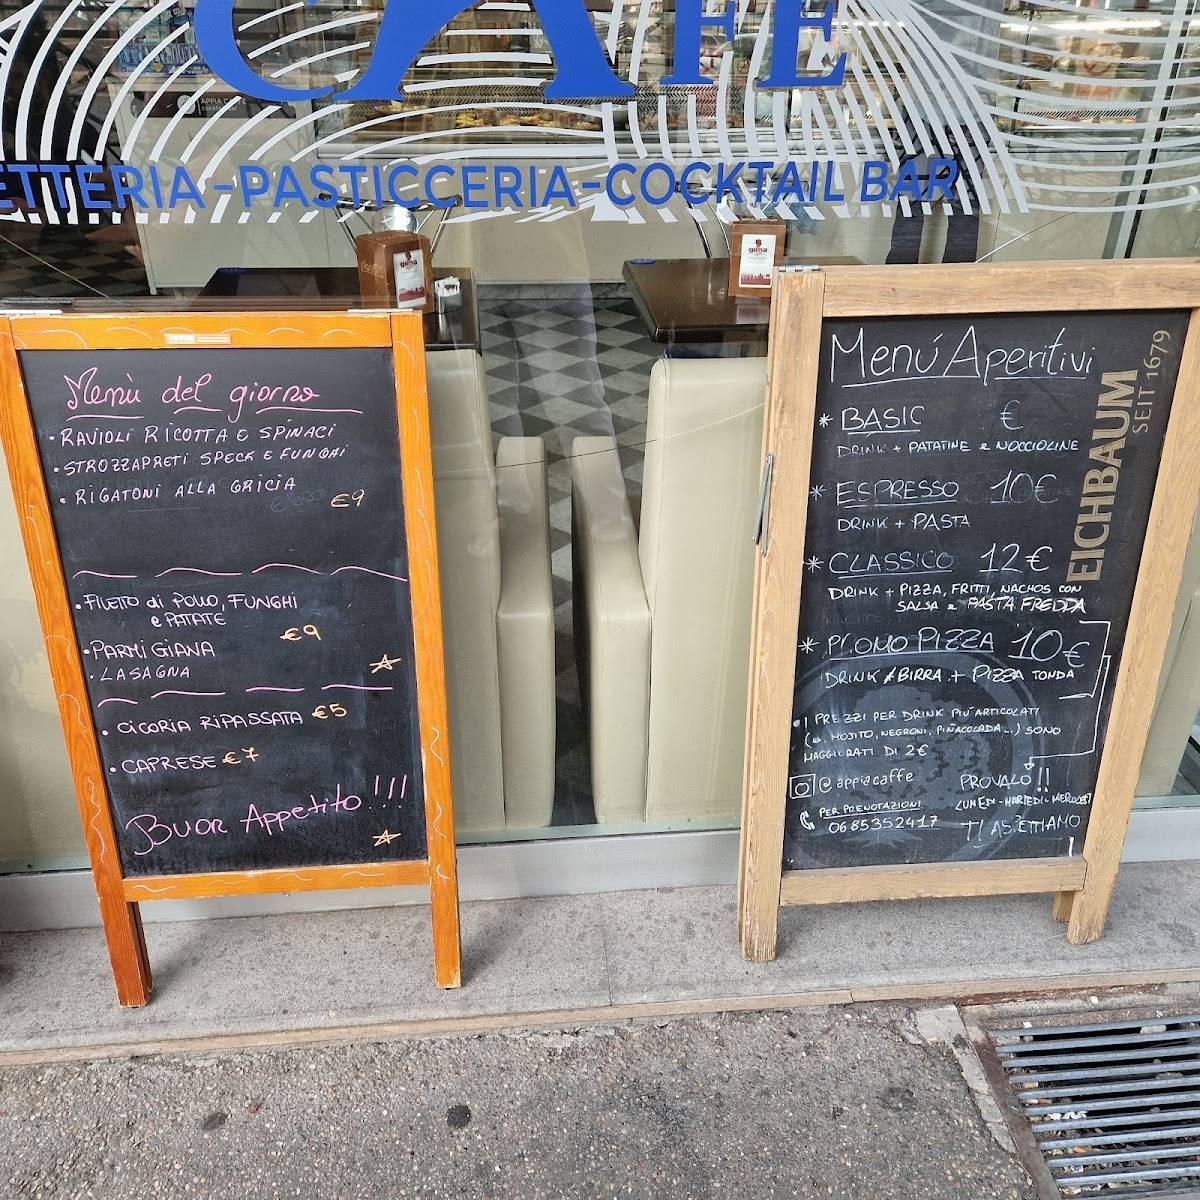 CAFE
ETTERIA-PASTICCERIA-COCKTAIL BAR
APPIA CAFFÈ
gima
gima
Menù del giorno
• RAVIOLI RICOTTA E SPINACI
• STROZZAPRETI SPECK E FUNGHI
• RIGATONI ALLA GRICIA
€9
• FILETTO di POLLO, FUNGHI
e PATATE
€9
• PARMIGIANA
• LASAGNA
• CICORIA RIPASSATA €5
• CAPRESE €7
Buon Appetito!!!!
Menú Aperitivi
* BASIC €
DRINK + PATATINE e NOCCIOLINE
* ESPRESSO 10€
DRINK + PASTA
* CLASSICO 12€
DRINK + PIZZA, FRITTI, NACHOS CON
SALSA e PASTA FREDDA
* PROMO PIZZA 10€
DRINK/BIRRA + PIZZA TONDA
• I PREZZI PER DRINK PIU' ARTICOLATI
(es. MOJITO, NEGRONI, PIÑACOLADA...) SONO
MAGGIORATI DI 2€
@appiacaffe
PER PRENOTAZIONI
0685352417
PROVALO!!
LUNEDI-MARTEDI-MERCOLEDI
TI ASPETTIAMO
EICHBAUM
SEIT 1679